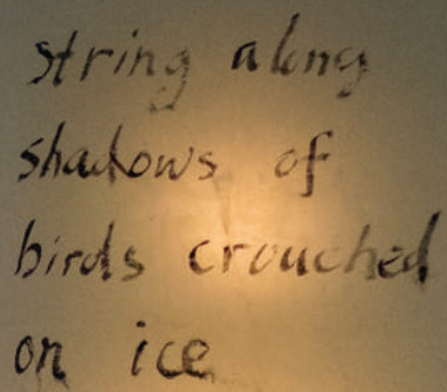 string along
shadows of
birds crouched
on ice